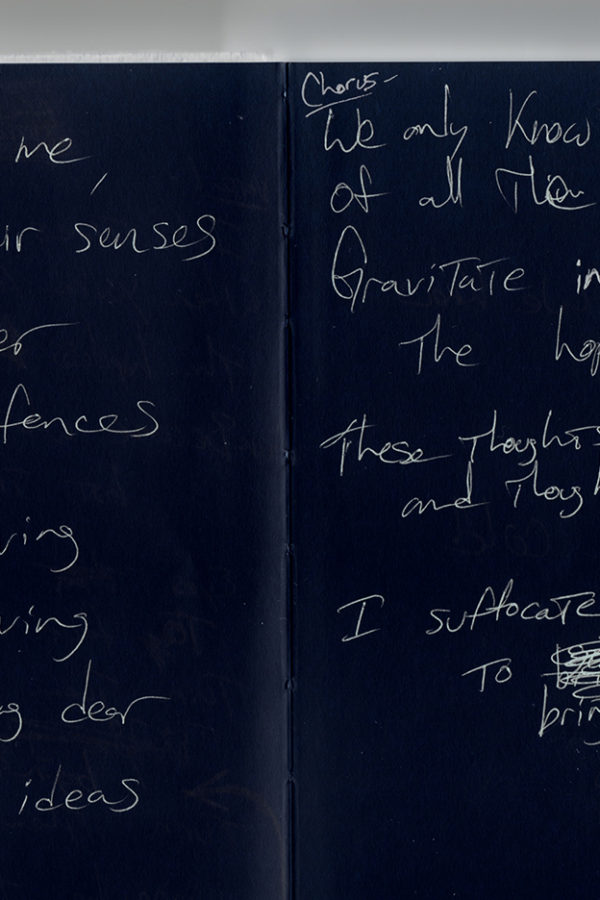 me,
ir senses
er
fences
ring
ving
g dear
ideas
Chorus-
We only Know
of all
Gravitate in
The hop
These Thoughts
and Thoug
I suffocate
To
brin